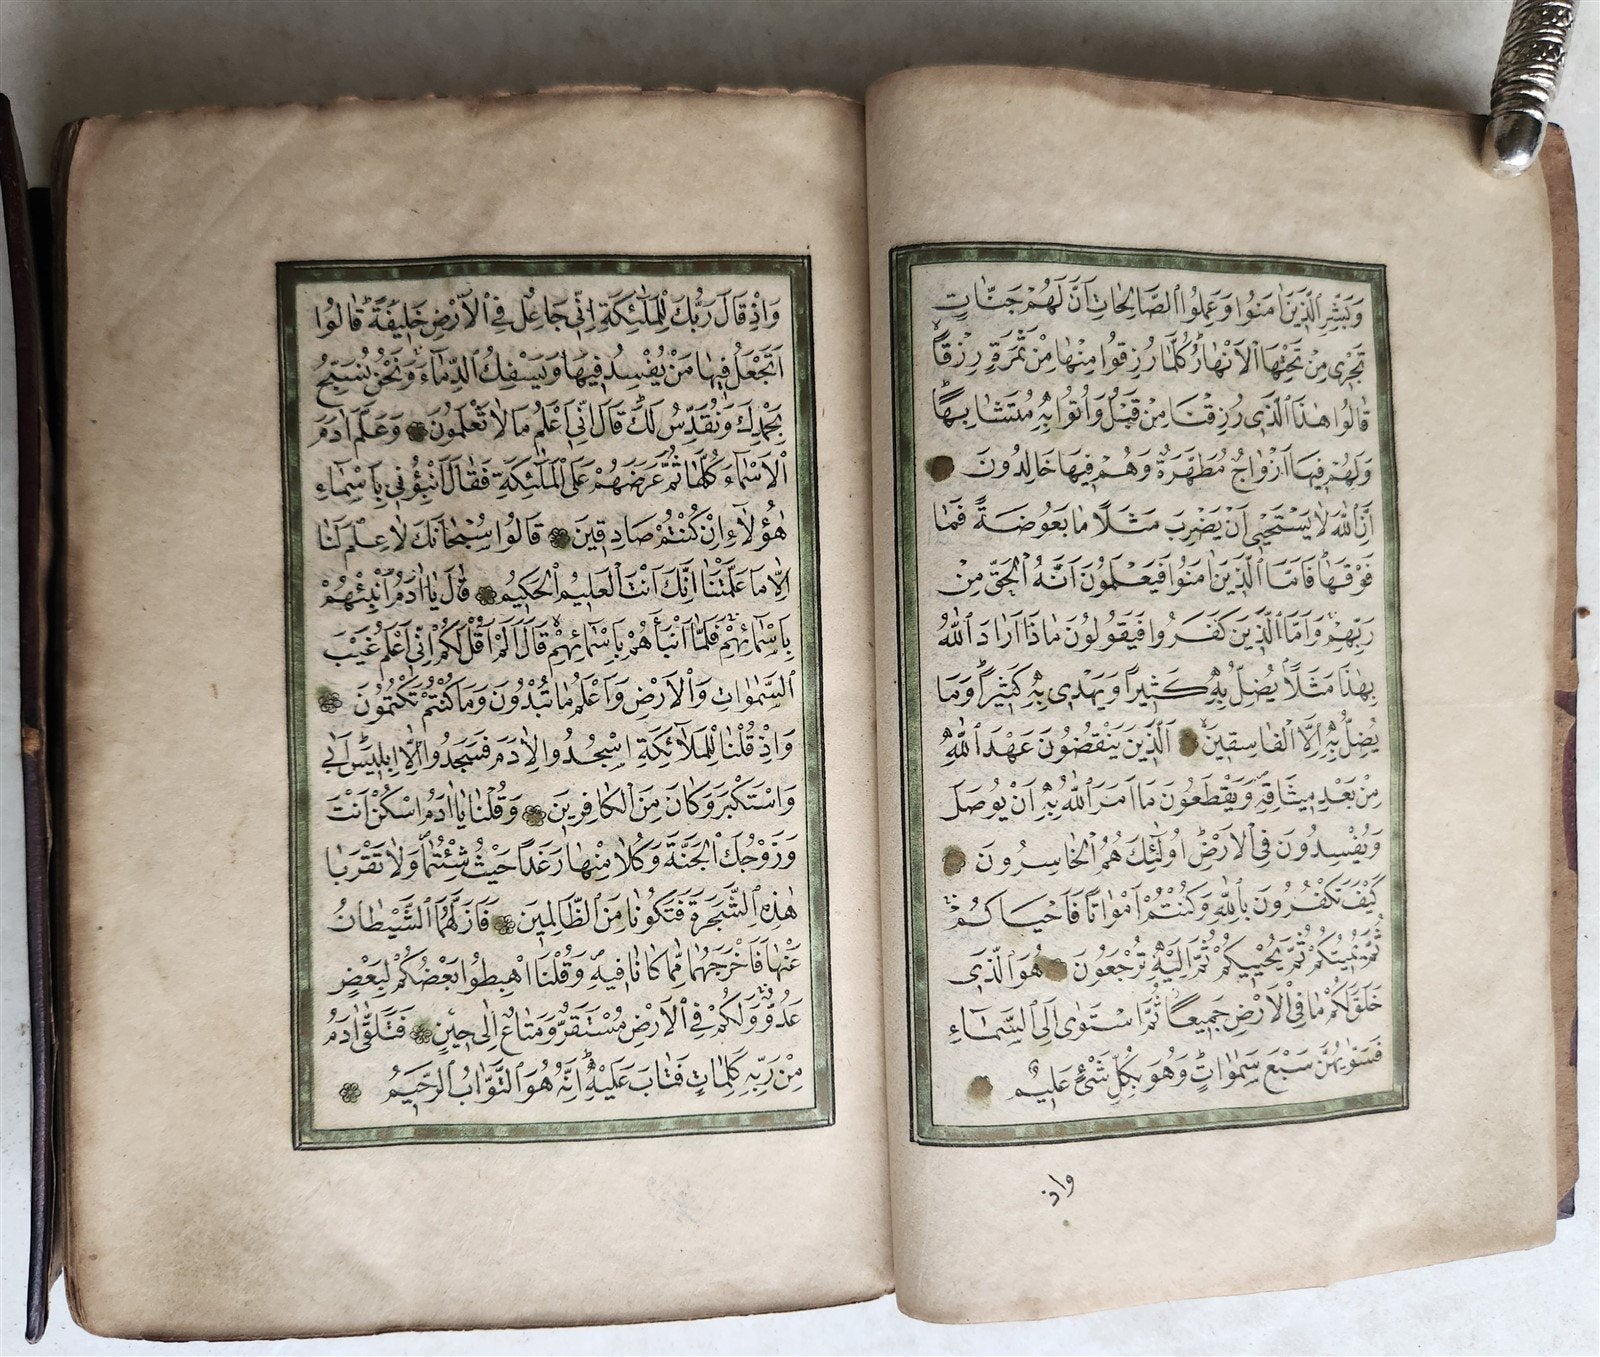 وَبَشِّرِ الَّذِينَ اٰمَنُوا وَعَمِلُوا الصَّالِحَاتِ اَنَّ لَهُمْ جَنَّاتٍ
تَجْرِى مِنْ تَحْتِهَا الْاَنْهَارُ كُلَّمَا رُزِقُوا مِنْهَا مِنْ ثَمَرَةٍ رِزْقًا
قَالُوا هٰذَا الَّذِى رُزِقْنَا مِنْ قَبْلُ وَاُتُوا بِهِ مُتَشَابِهًا
وَلَهُمْ فِيهَا اَزْوَاجٌ مُطَهَّرَةٌ وَهُمْ فِيهَا خَالِدُونَ
اِنَّ اللّٰهَ لَا يَسْتَحْيِى اَنْ يَضْرِبَ مَثَلًا مَا بَعُوضَةً فَمَا
فَوْقَهَا فَاَمَّا الَّذِينَ اٰمَنُوا فَيَعْلَمُونَ اَنَّهُ الْحَقُّ مِنْ
رَبِّهِمْ وَاَمَّا الَّذِينَ كَفَرُوا فَيَقُولُونَ مَاذَا اَرَادَ اللّٰهُ
بِهٰذَا مَثَلًا يُضِلُّ بِهِ كَثِيرًا وَيَهْدِى بِهِ كَثِيرًا وَمَا
يُضِلُّ بِهِ اِلَّا الْفَاسِقِينَ الَّذِينَ يَنْقُضُونَ عَهْدَ اللّٰهِ
مِنْ بَعْدِ مِيثَاقِهِ وَيَقْطَعُونَ مَا اَمَرَ اللّٰهُ بِهِ اَنْ يُوصَلَ
وَيُفْسِدُونَ فِى الْاَرْضِ اُولٰئِكَ هُمُ الْخَاسِرُونَ
كَيْفَ تَكْفُرُونَ بِاللّٰهِ وَكُنْتُمْ اَمْوَاتًا فَاَحْيَاكُمْ
ثُمَّ يُمِيتُكُمْ ثُمَّ يُحْيِيكُمْ ثُمَّ اِلَيْهِ تُرْجَعُونَ هُوَ الَّذِى
خَلَقَ لَكُمْ مَا فِى الْاَرْضِ جَمِيعًا ثُمَّ اسْتَوٰى اِلَى السَّمَاءِ
فَسَوّٰيهُنَّ سَبْعَ سَمٰوَاتٍ وَهُوَ بِكُلِّ شَىْءٍ عَلِيمٌ
واذ
وَاِذْ قَالَ رَبُّكَ لِلْمَلٰئِكَةِ اِنِّى جَاعِلٌ فِى الْاَرْضِ خَلِيفَةً قَالُوا
اَتَجْعَلُ فِيهَا مَنْ يُفْسِدُ فِيهَا وَيَسْفِكُ الدِّمَاءَ وَنَحْنُ نُسَبِّحُ
بِحَمْدِكَ وَنُقَدِّسُ لَكَ قَالَ اِنِّى اَعْلَمُ مَا لَا تَعْلَمُونَ وَعَلَّمَ اٰدَمَ
الْاَسْمَاءَ كُلَّهَا ثُمَّ عَرَضَهُمْ عَلَى الْمَلٰئِكَةِ فَقَالَ اَنْبِؤُنِى بِاَسْمَاءِ
هٰؤُلَاءِ اِنْ كُنْتُمْ صَادِقِينَ قَالُوا سُبْحَانَكَ لَا عِلْمَ لَنَا
اِلَّا مَا عَلَّمْتَنَا اِنَّكَ اَنْتَ الْعَلِيمُ الْحَكِيمُ قَالَ يَا اٰدَمُ اَنْبِئْهُمْ
بِاَسْمَائِهِمْ فَلَمَّا اَنْبَأَهُمْ بِاَسْمَائِهِمْ قَالَ اَلَمْ اَقُلْ لَكُمْ اِنِّى اَعْلَمُ غَيْبَ
السَّمٰوَاتِ وَالْاَرْضِ وَاَعْلَمُ مَا تُبْدُونَ وَمَا كُنْتُمْ تَكْتُمُونَ
وَاِذْ قُلْنَا لِلْمَلَائِكَةِ اسْجُدُوا لِاٰدَمَ فَسَجَدُوا اِلَّا اِبْلِيسَ اَبٰى
وَاسْتَكْبَرَ وَكَانَ مِنَ الْكَافِرِينَ وَقُلْنَا يَا اٰدَمُ اسْكُنْ اَنْتَ
وَزَوْجُكَ الْجَنَّةَ وَكُلَا مِنْهَا رَغَدًا حَيْثُ شِئْتُمَا وَلَا تَقْرَبَا
هٰذِهِ الشَّجَرَةَ فَتَكُونَا مِنَ الظَّالِمِينَ فَاَزَلَّهُمَا الشَّيْطَانُ
عَنْهَا فَاَخْرَجَهُمَا مِمَّا كَانَا فِيهِ وَقُلْنَا اهْبِطُوا بَعْضُكُمْ لِبَعْضٍ
عَدُوٌّ وَلَكُمْ فِى الْاَرْضِ مُسْتَقَرٌّ وَمَتَاعٌ اِلٰى حِينٍ فَتَلَقّٰى اٰدَمُ
مِنْ رَبِّهِ كَلِمَاتٍ فَتَابَ عَلَيْهِ اِنَّهُ هُوَ التَّوَّابُ الرَّحِيمُ